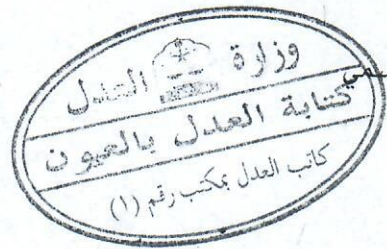 وزارة العدل
كتابة العدل بالعيون
كاتب العدل بمكتب رقم (١)